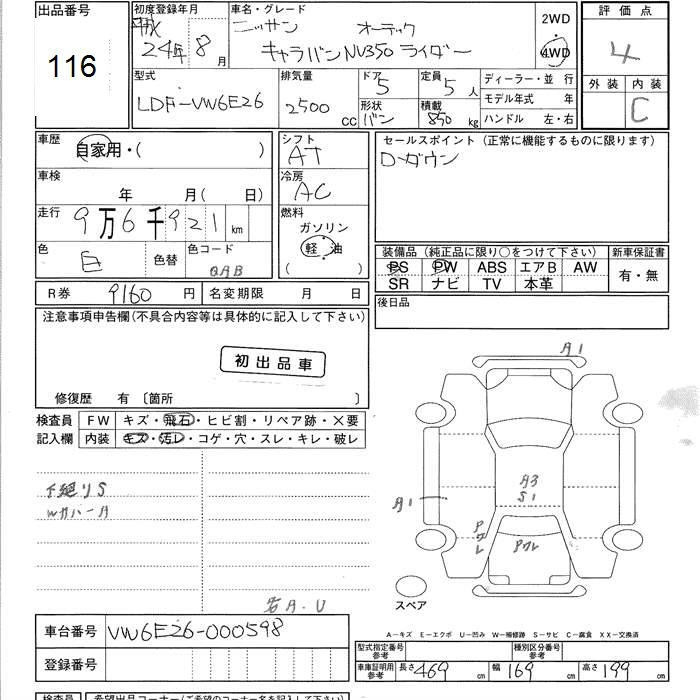 出品番号
116
初度登録年月
平成
24年 8月
車名・グレード
ニッサン オーテック
キャラバンNV350 ライダー
2WD
4WD
評価点
4
外装 内装
C
型式
LDF-VW6E26
排気量
2500
cc
ドア
5
形状
バン
定員
5人
積載
850 kg
ディーラー・並 行
モデル年式 年
ハンドル 左・右
車歴
自家用・( )
車検
年 月( 日)
走行
9万6千921 km
色
白
色替
色コード
QAB
シフト
AT
冷房
AC
燃料
ガソリン
軽 油
( )
セールスポイント (正常に機能するものに限ります)
D-ダウン
装備品 (純正品に限り○をつけて下さい)
PS PW ABS エアB AW
SR ナビ TV 本革
新車保証書
有・無
後日品
R券 9160 円
名変期限 月 日
注意事項申告欄(不具合内容等は具体的に記入して下さい)
初出品車
修復歴 有 〔箇所 〕
検査員
記入欄
FW キズ・飛石・ヒビ割・リペア跡・×要
内装 キズ・汚レ・コゲ・穴・スレ・キレ・破レ
下廻りS
A・U
A1
A1
A3
S1
Pクレ
Pクレ
スペア
車台番号 VW6E26-000598
登録番号
A-キズ E-エクボ U-凹み W-補修跡 S-サビ C-腐食 XX-交換済
型式指定番号
参考
種別区分番号
参考
車庫証明用
参考
長さ 469 cm 幅 169 cm 高さ 199 cm
検査員 希望出品コーナー(ご希望のコーナー名を記入下さい)